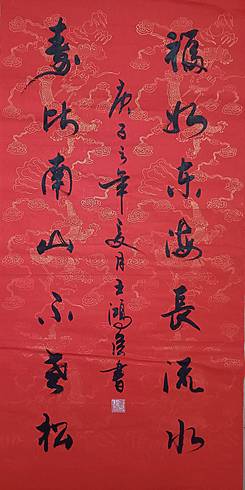 福如东海長流水
寿比南山不老松
庚子之年夏月王鴻俊書